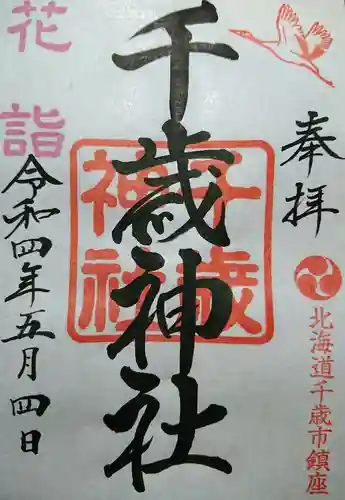 奉拝
北海道千歳市鎮座
千歳神社
千歳
神社
花詣
令和四年五月四日